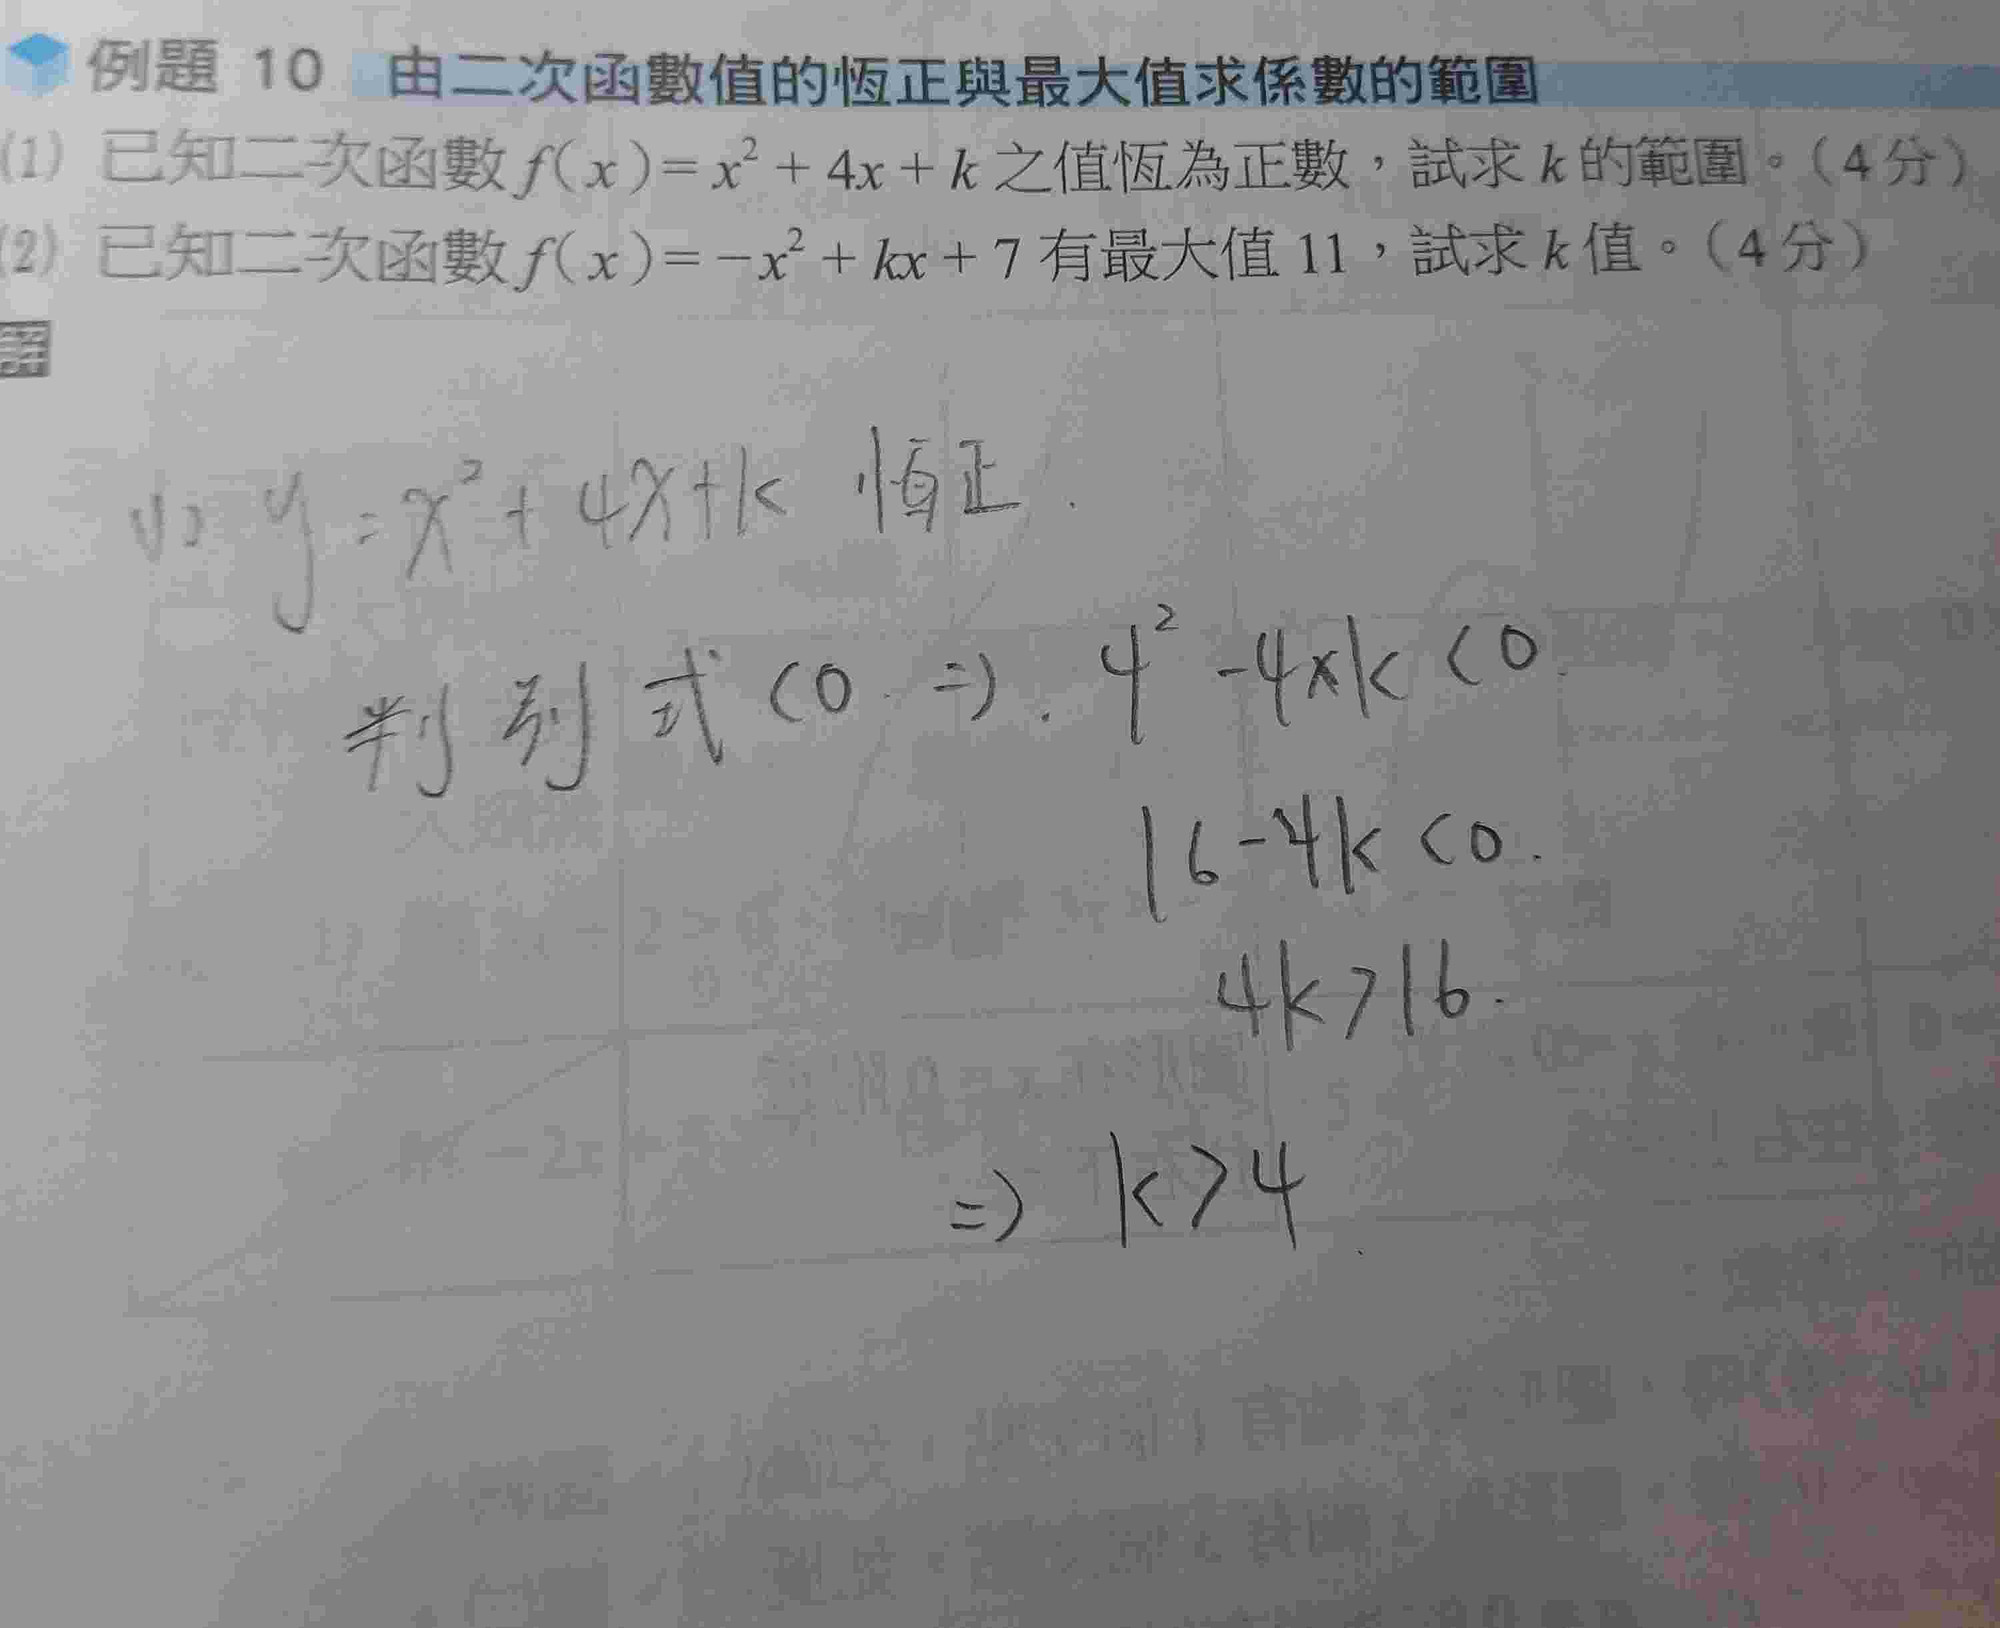 例題 10 由二次函數值的恆正與最大值求係數的範圍
(1) 已知二次函數 f(x)=x²+4x+k 之值恆為正數，試求 k 的範圍。（4分）
(2) 已知二次函數 f(x)=-x²+kx+7 有最大值 11，試求 k 值。（4分）
(1) y=x²+4x+k 恆正.
判別式<0 ⇒ 4²-4×k<0
16-4k<0.
4k>16.
⇒ k>4